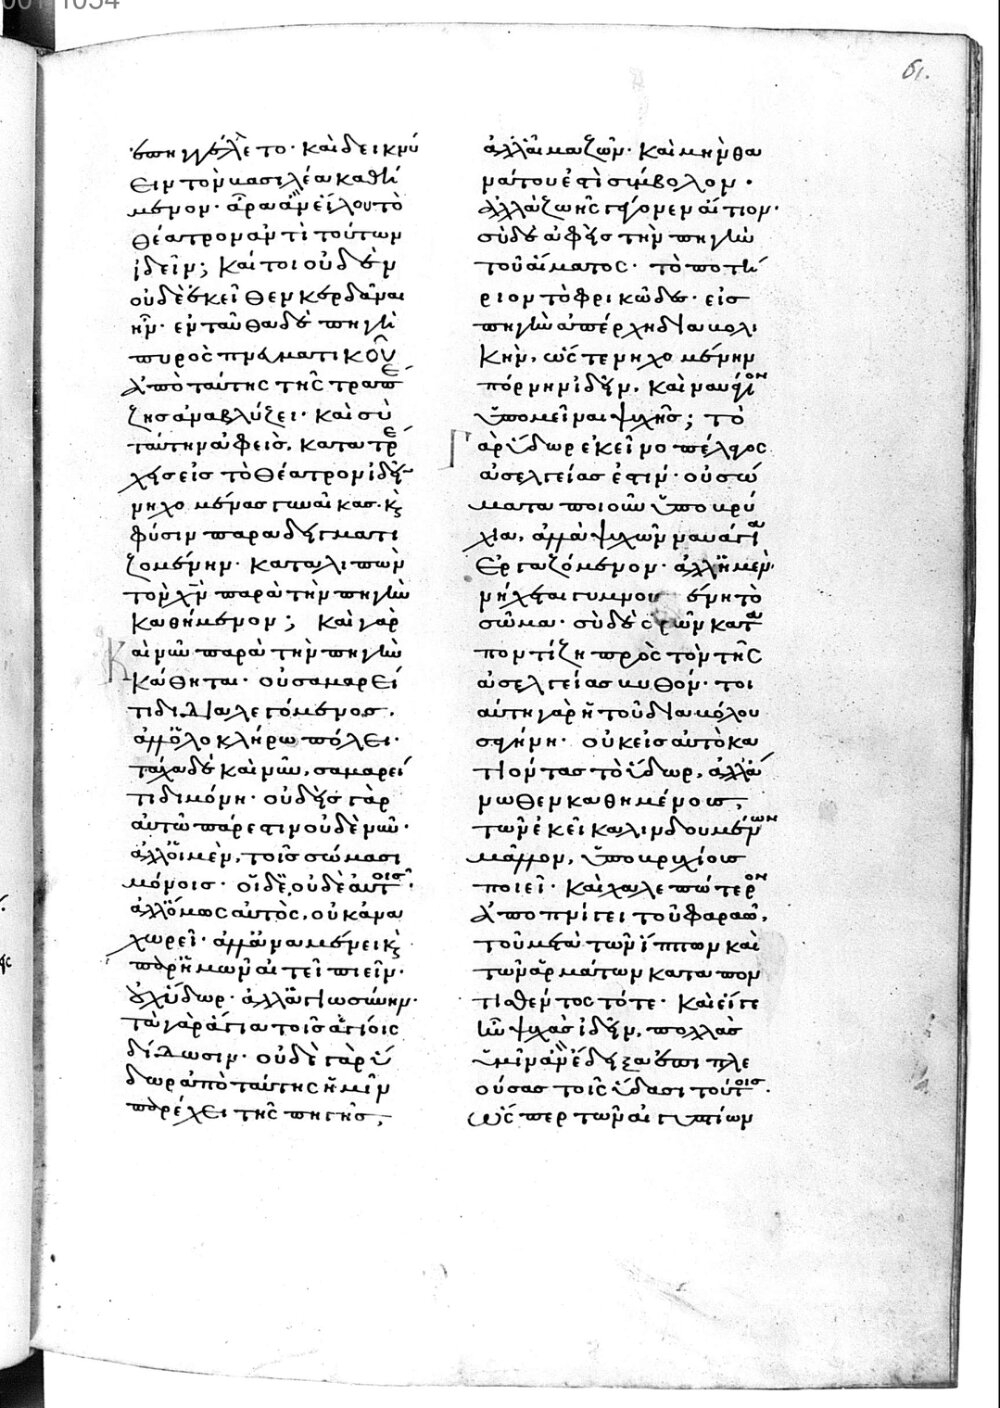 61.
ἐπηγγέλλετο· καὶ δεικνύ
ειν τὸν βασιλέα καθή
μενον· ἆρα ἂν εἵλου τὸ
θέατρον ἀντὶ τούτων
ἰδεῖν; καίτοι οὐδὲν
οὐδὲ ἐκεῖθεν κερδᾶναι
ἦν· ἐνταῦθα δὲ πηγὴ
πυρὸς πνευματικοῦ
ἀπὸ ταύτης τῆς τραπέ
ζης ἀναβλύζει· καὶ σὺ
ταύτην ἀφεὶς, κατατρέ
χεις εἰς τὸ θέατρον ἰδεῖν
νηχομένας γυναῖκας· κ(αὶ)
φύσιν παραδειγματι
ζομένην· καταλιπὼν
τὸν χν παρὰ τὴν πηγὴν
καθήμενον; καὶ γὰρ
καὶ νῦν παρὰ τὴν πηγὴν
κάθηται· οὐ σαμαρεί
τιδι διαλεγόμενος,
ἀλλ' ὁλοκλήρω πόλει·
τάχα δὲ καὶ νῦν, σαμαρεί
τιδι μόνη· οὐδεὶς γὰρ
αὐτῶ πάρεστιν οὐδὲ νῦν·
ἀλλ' οἱ μὲν, τοῖς σώμασι
μόνοις· οἱ δὲ, οὐδὲ αὐτοῖς·
ἀλλ' ὅμως αὐτὸς, οὐκ ἀνα
χωρεῖ· ἀλλὰ ἀναμένει κ(αὶ)
παρ' ἡμῶν αἰτεῖ πιεῖν·
οὐχ ὕδωρ· ἀλλ' ἁγιωσύνην·
τὰ γὰρ ἅγια τοῖς ἁγίοις
δίδωσιν· οὐδὲ γὰρ ὕ
δωρ ἀπὸ ταύτης ἡμῖν
παρέχει τῆς πηγῆς,
ἀλλ' αἷμα ζῶν· καὶ μὴν θα
νάτου ἐστὶ σύμβολον·
ἀλλὰ ζωῆς γέγονεν αἴτιον·
σὺ δὲ ἀφεὶς τὴν πηγὴν
τοῦ αἵματος· τὸ ποτή
ριον τὸ φρικῶδες· εἰς
πηγὴν ἀπέρχη διαβολι
κήν, ὥστε νηχομένην
πόρνην ἰδεῖν, καὶ ναυάγιον
ὑπομεῖναι ψυχῆς; τὸ
γὰρ ὕδωρ ἐκεῖνο πέλαγος
ἀσελγείας ἐστίν· οὐ σώ
ματα ποιοῦν ὑποβρύ
χια, ἀλλὰ ψυχῶν ναυάγια
ἐργαζόμενον· ἀλλ' ἡ μὲν
νήχεται γυμνουμένη τὸ
σῶμα· σὺ δὲ ὁρῶν κατα
ποντίζη πρὸς τὸν τῆς
ἀσελγείας βυθόν· τοι
αύτη γὰρ ἡ τοῦ διαβόλου
σαγήνη· οὐκ εἰς αὐτὸ κα
τιόντας τὸ ὕδωρ, ἀλλ' ἄ
νωθεν καθημένους,
τῶν ἐκεῖ καλινδουμένων
μᾶλλον, ὑποβρυχίους
ποιεῖ· καὶ χαλεπώτερον
ἀποπνίγει τοῦ φαραὼ,
τοῦ μετὰ τῶν ἵππων καὶ
τῶν ἁρμάτων καταπον
τισθέντος τότε· καὶ εἴγε
ἦν ψυχὰς ἰδεῖν, πολλὰς
ὑμῖν ἂν ἔδειξα ἐπιπλε
ούσας τοῖς ὕδασι τούτοις·
ὥσπερ τῶν αἰγυπτίων